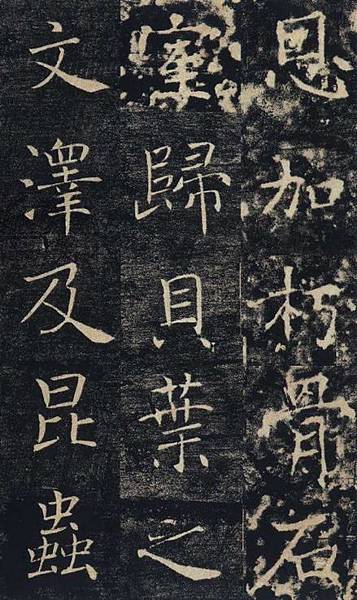 恩加朽骨石
室歸貝葉之
文澤及昆蟲